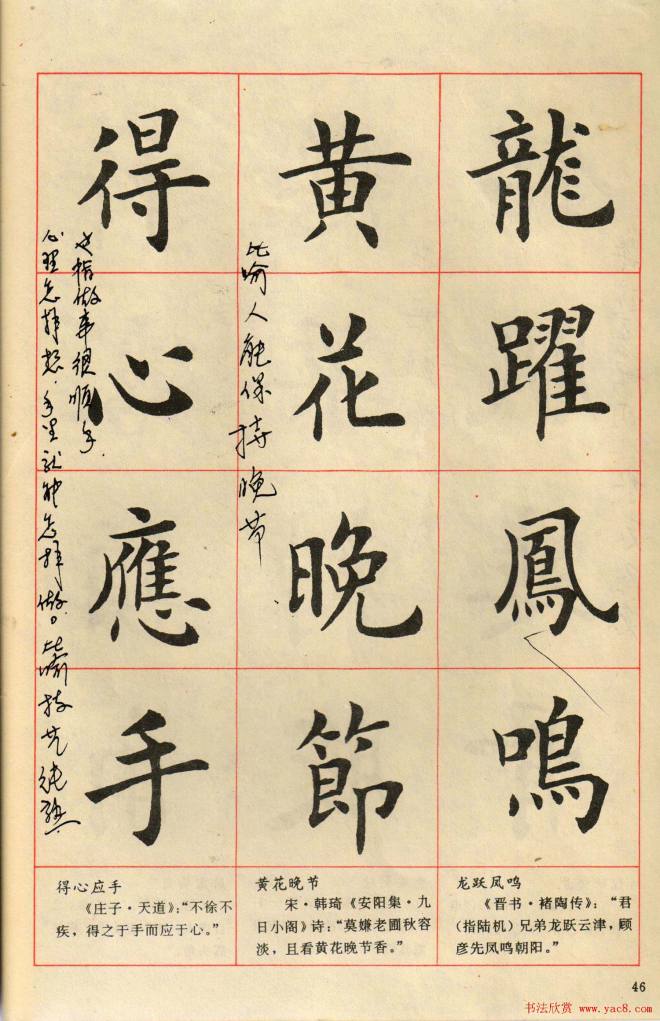 龍躍鳳鳴
黄花晚節
得心應手
比喻人能保持晚节
也指做事很顺手
心里怎样想，手里就能怎样做。比喻技艺纯熟
龙跃凤鸣
《晋书·褚陶传》：“君
（指陆机）兄弟龙跃云津，顾
彦先凤鸣朝阳。”
黄花晚节
宋·韩琦《安阳集·九
日小阁》诗：“莫嫌老圃秋容
淡，且看黄花晚节香。”
得心应手
《庄子·天道》：“不徐不
疾，得之于手而应于心。”
46
书法欣赏 www.yac8.com